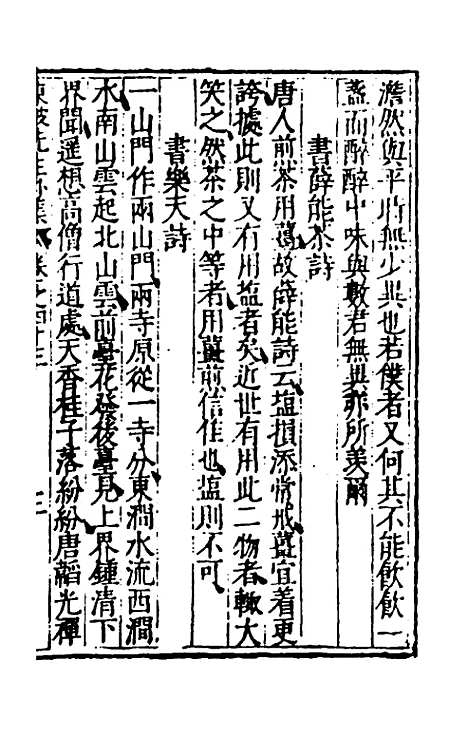 澹然與平時無少異也若僕者又何其不能飲飲一
盞而醉醉中味與數君無異亦所羨爾
書薛能茶詩
唐人煎茶用薑故薛能詩云塩損添常戒薑宜着更
誇據此則又有用塩者矣近世有用此二物者輙大
笑之然茶之中等者用薑煎信佳也塩則不可
書樂天詩
一山門作兩山門兩寺原從一寺分東澗水流西澗
水南山雲起北山雲前臺花發後臺見上界鍾清下
界聞遥想高僧行道處天香桂子落紛紛唐韜光禪